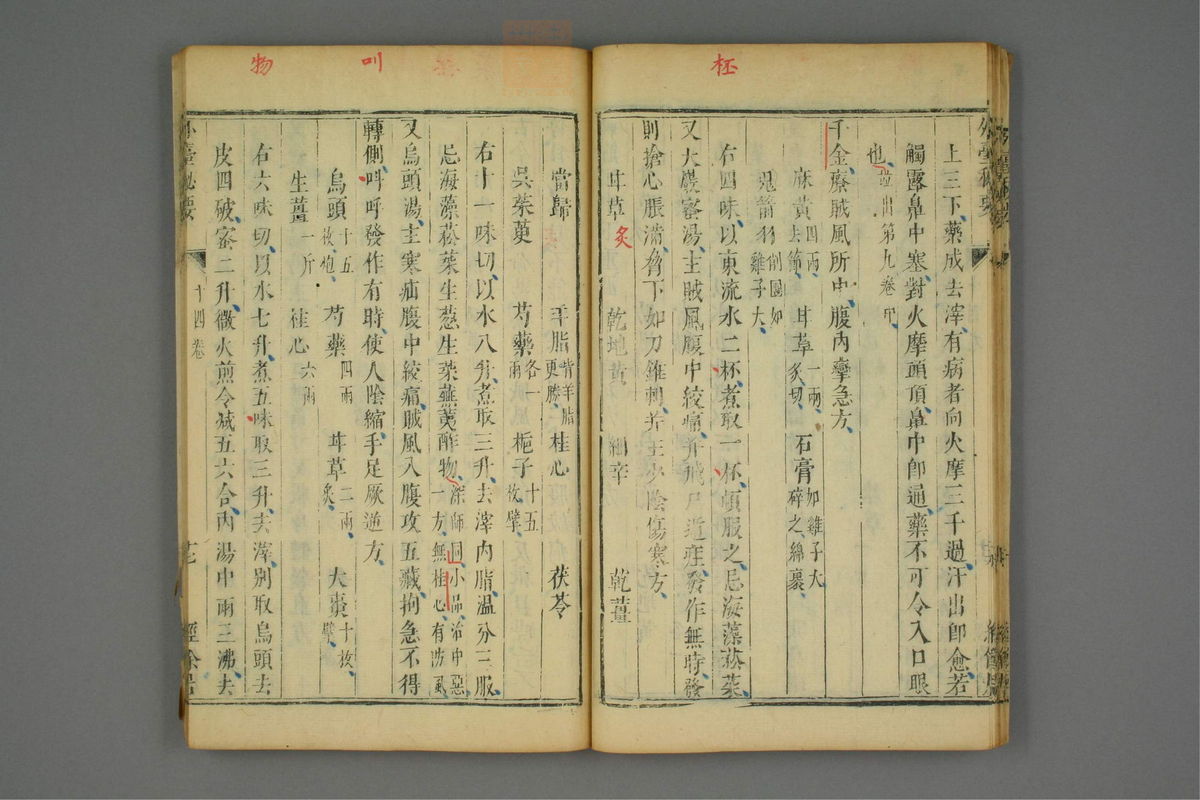 杯
上三下藥成去滓有病者向火摩三千過汗出即愈若
觸露鼻中塞對火摩頭頂鼻中即通藥不可令入口眼
也並出第九卷中
千金療賊風所中腹內攣急方
麻黃四兩去節 甘草一兩炙切 石膏如雞子大碎之綿裹
鬼箭羽削團如雞子大
右四味以東流水二杯煮取一杯頓服之忌海藻菘菜
又大巖蜜湯主賊風腹中絞痛并飛尸遁疰發作無時發
則搶心脹滿脅下如刀錐刺并主少陰傷寒方
甘草炙 乾地黃 細辛 乾薑
叫 物
當歸 羊脂青羊脂更勝 桂心 茯苓
吳茱萸 芍藥各一兩 梔子十五枚擘
右十一味切以水八升煮取三升去滓內脂溫分三服
忌海藻菘菜生蔥生菜蕪荑酢物深師同小品治中惡一方無桂心有防風
又烏頭湯主寒疝腹中絞痛賊風入腹攻五藏拘急不得
轉側叫呼發作有時使人陰縮手足厥逆方
烏頭十五枚炮 芍藥四兩 甘草二兩炙 大棗十枚擘
生薑一斤 桂心六兩
右六味切以水七升煮五味取三升去滓別取烏頭去
皮四破蜜二升微火煎令減五六合內湯中兩三沸去
外臺秘要 十四卷 經餘居